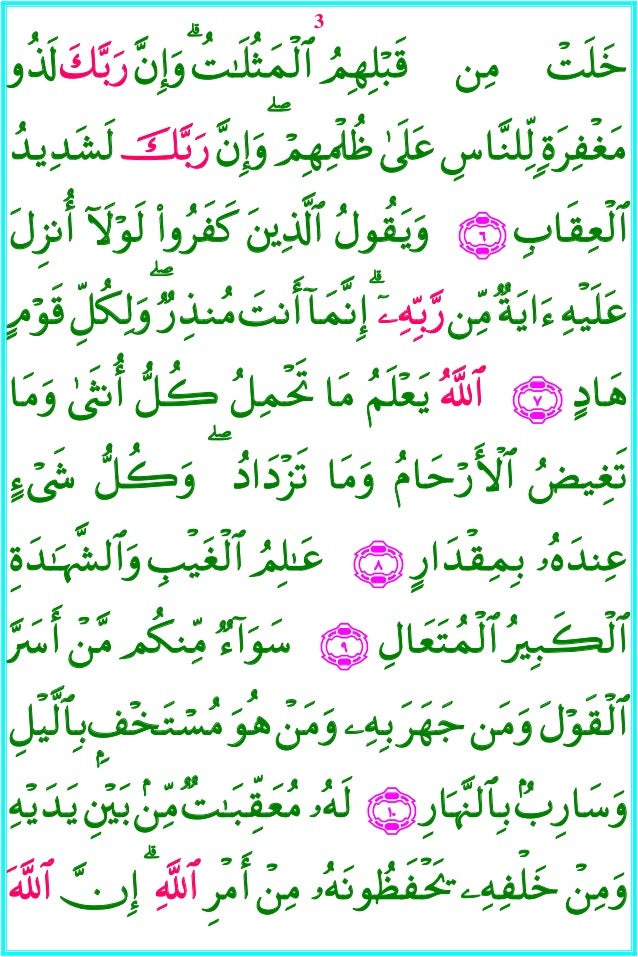 3
خَلَتْ مِن قَبْلِهِمُ ٱلْمَثُلَٰتُ ۗ وَإِنَّ رَبَّكَ لَذُو
مَغْفِرَةٍ لِّلنَّاسِ عَلَىٰ ظُلْمِهِمْ ۖ وَإِنَّ رَبَّكَ لَشَدِيدُ
ٱلْعِقَابِ ٦ وَيَقُولُ ٱلَّذِينَ كَفَرُوا۟ لَوْلَآ أُنزِلَ
عَلَيْهِ ءَايَةٌ مِّن رَّبِّهِۦٓ ۗ إِنَّمَآ أَنتَ مُنذِرٌ ۖ وَلِكُلِّ قَوْمٍ
هَادٍ ٧ ٱللَّهُ يَعْلَمُ مَا تَحْمِلُ كُلُّ أُنثَىٰ وَمَا
تَغِيضُ ٱلْأَرْحَامُ وَمَا تَزْدَادُ ۖ وَكُلُّ شَىْءٍ
عِندَهُۥ بِمِقْدَارٍ ٨ عَٰلِمُ ٱلْغَيْبِ وَٱلشَّهَٰدَةِ
ٱلْكَبِيرُ ٱلْمُتَعَالِ ٩ سَوَآءٌ مِّنكُم مَّنْ أَسَرَّ
ٱلْقَوْلَ وَمَن جَهَرَ بِهِۦ وَمَنْ هُوَ مُسْتَخْفٍۭ بِٱلَّيْلِ
وَسَارِبٌۢ بِٱلنَّهَارِ ١٠ لَهُۥ مُعَقِّبَٰتٌ مِّنۢ بَيْنِ يَدَيْهِ
وَمِنْ خَلْفِهِۦ يَحْفَظُونَهُۥ مِنْ أَمْرِ ٱللَّهِ ۗ إِنَّ ٱللَّهَ